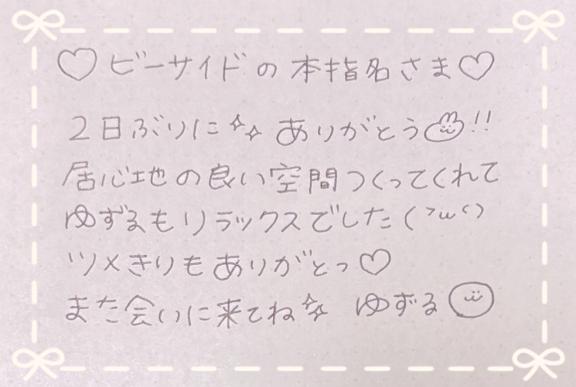 ♡ ビーサイドの本指名さま♡
2日ぶりに✨ ありがとう!!
居心地の良い空間つくってくれて
ゆずるもリラックスでした(´ω`)
ツメきりもありがとっ♡
また会いに来てね✨ ゆずる☺